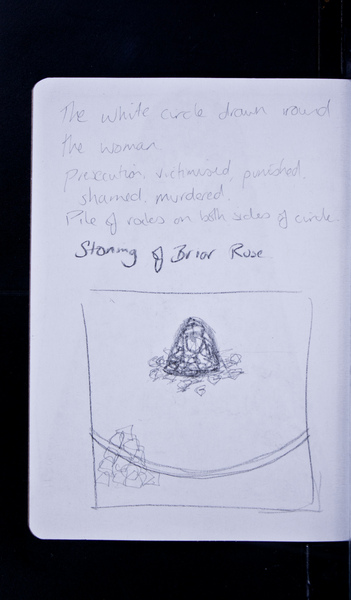 The white circle drawn round
the woman.
Prescution, victimised, punished,
shamed. murdered.
Pile of rocks on both sides of circle.
Stoning of Briar Rose